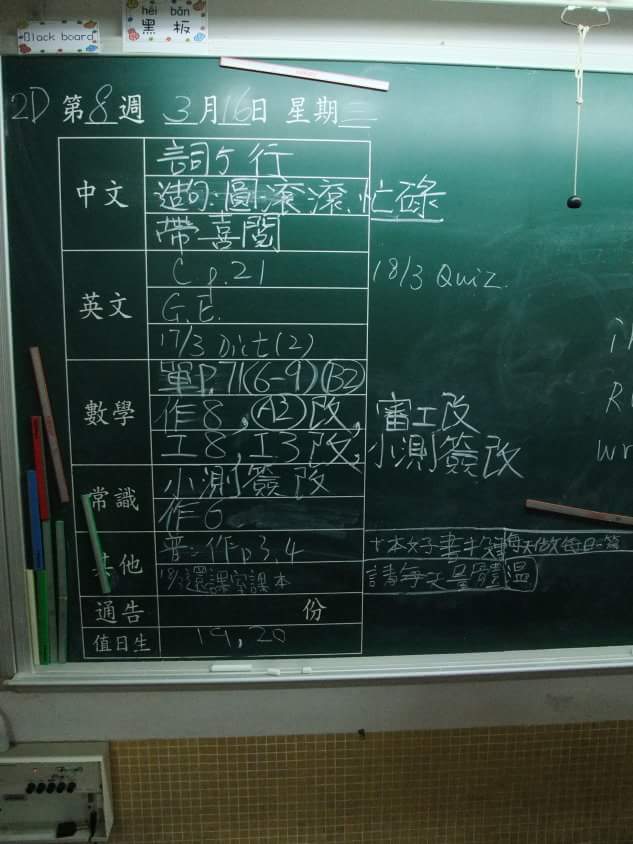 Black board
hēi bǎn
黑板
2D 第8週 3月16日 星期三
中文
詞5行
造句:圓滾滾、忙碌
帶喜閱
英文
C p.21
18/3 Quiz.
G.E.
17/3 Dict(2)
數學
單P.71(6-9)(B2)
作8,(A2)改,審工改
工8,工3改,小測簽改
常識
小測簽改
作6
其他
普:作p3,4
十本好書
每天做每日一篇
18/3還課室課本
請每天量體溫
通告 份
值日生 19,20